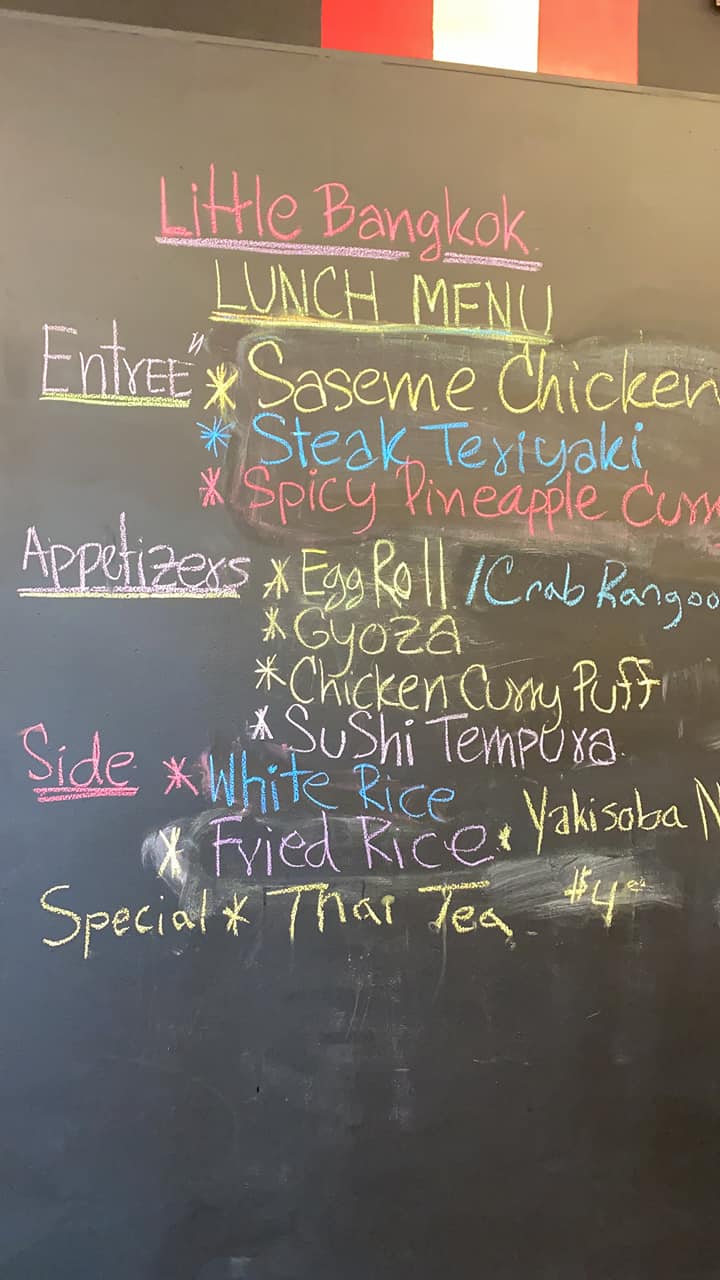 Little Bangkok
LUNCH MENU
EntrEE" * Saseme Chicken
* Steak Teriyaki
* Spicy Pineapple Curr
Appetizers * Egg Roll / Crab Rangoo
* Gyoza
* Chicken Curry Puff
* SuShi Tempura
Side * White Rice
* Fried Rice * Yakisoba N
Special * Thai Tea $4.00